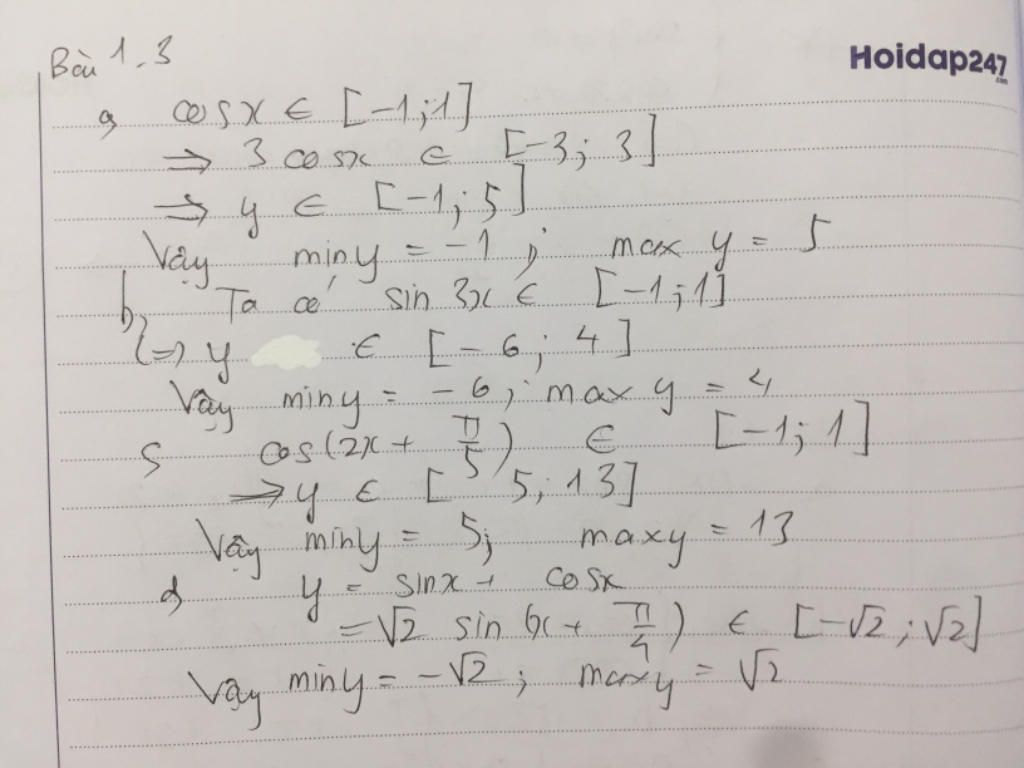 Bài 1.3
Hoidap247
.com
a) cosx ∈ [-1;1]
⇒ 3 cosx ∈ [-3; 3]
⇒ y ∈ [-1; 5]
Vậy min y = -1; max y = 5
b) Ta có sin 3x ∈ [-1;1]
(⇒) y ∈ [-6; 4]
Vậy min y = -6; max y = 4
c) cos(2x + π/5) ∈ [-1; 1]
⇒ y ∈ [5; 13]
Vậy min y = 5; max y = 13
d) y = sinx + cosx
= √2 sin (x + π/4) ∈ [-√2; √2]
Vậy min y = -√2; max y = √2